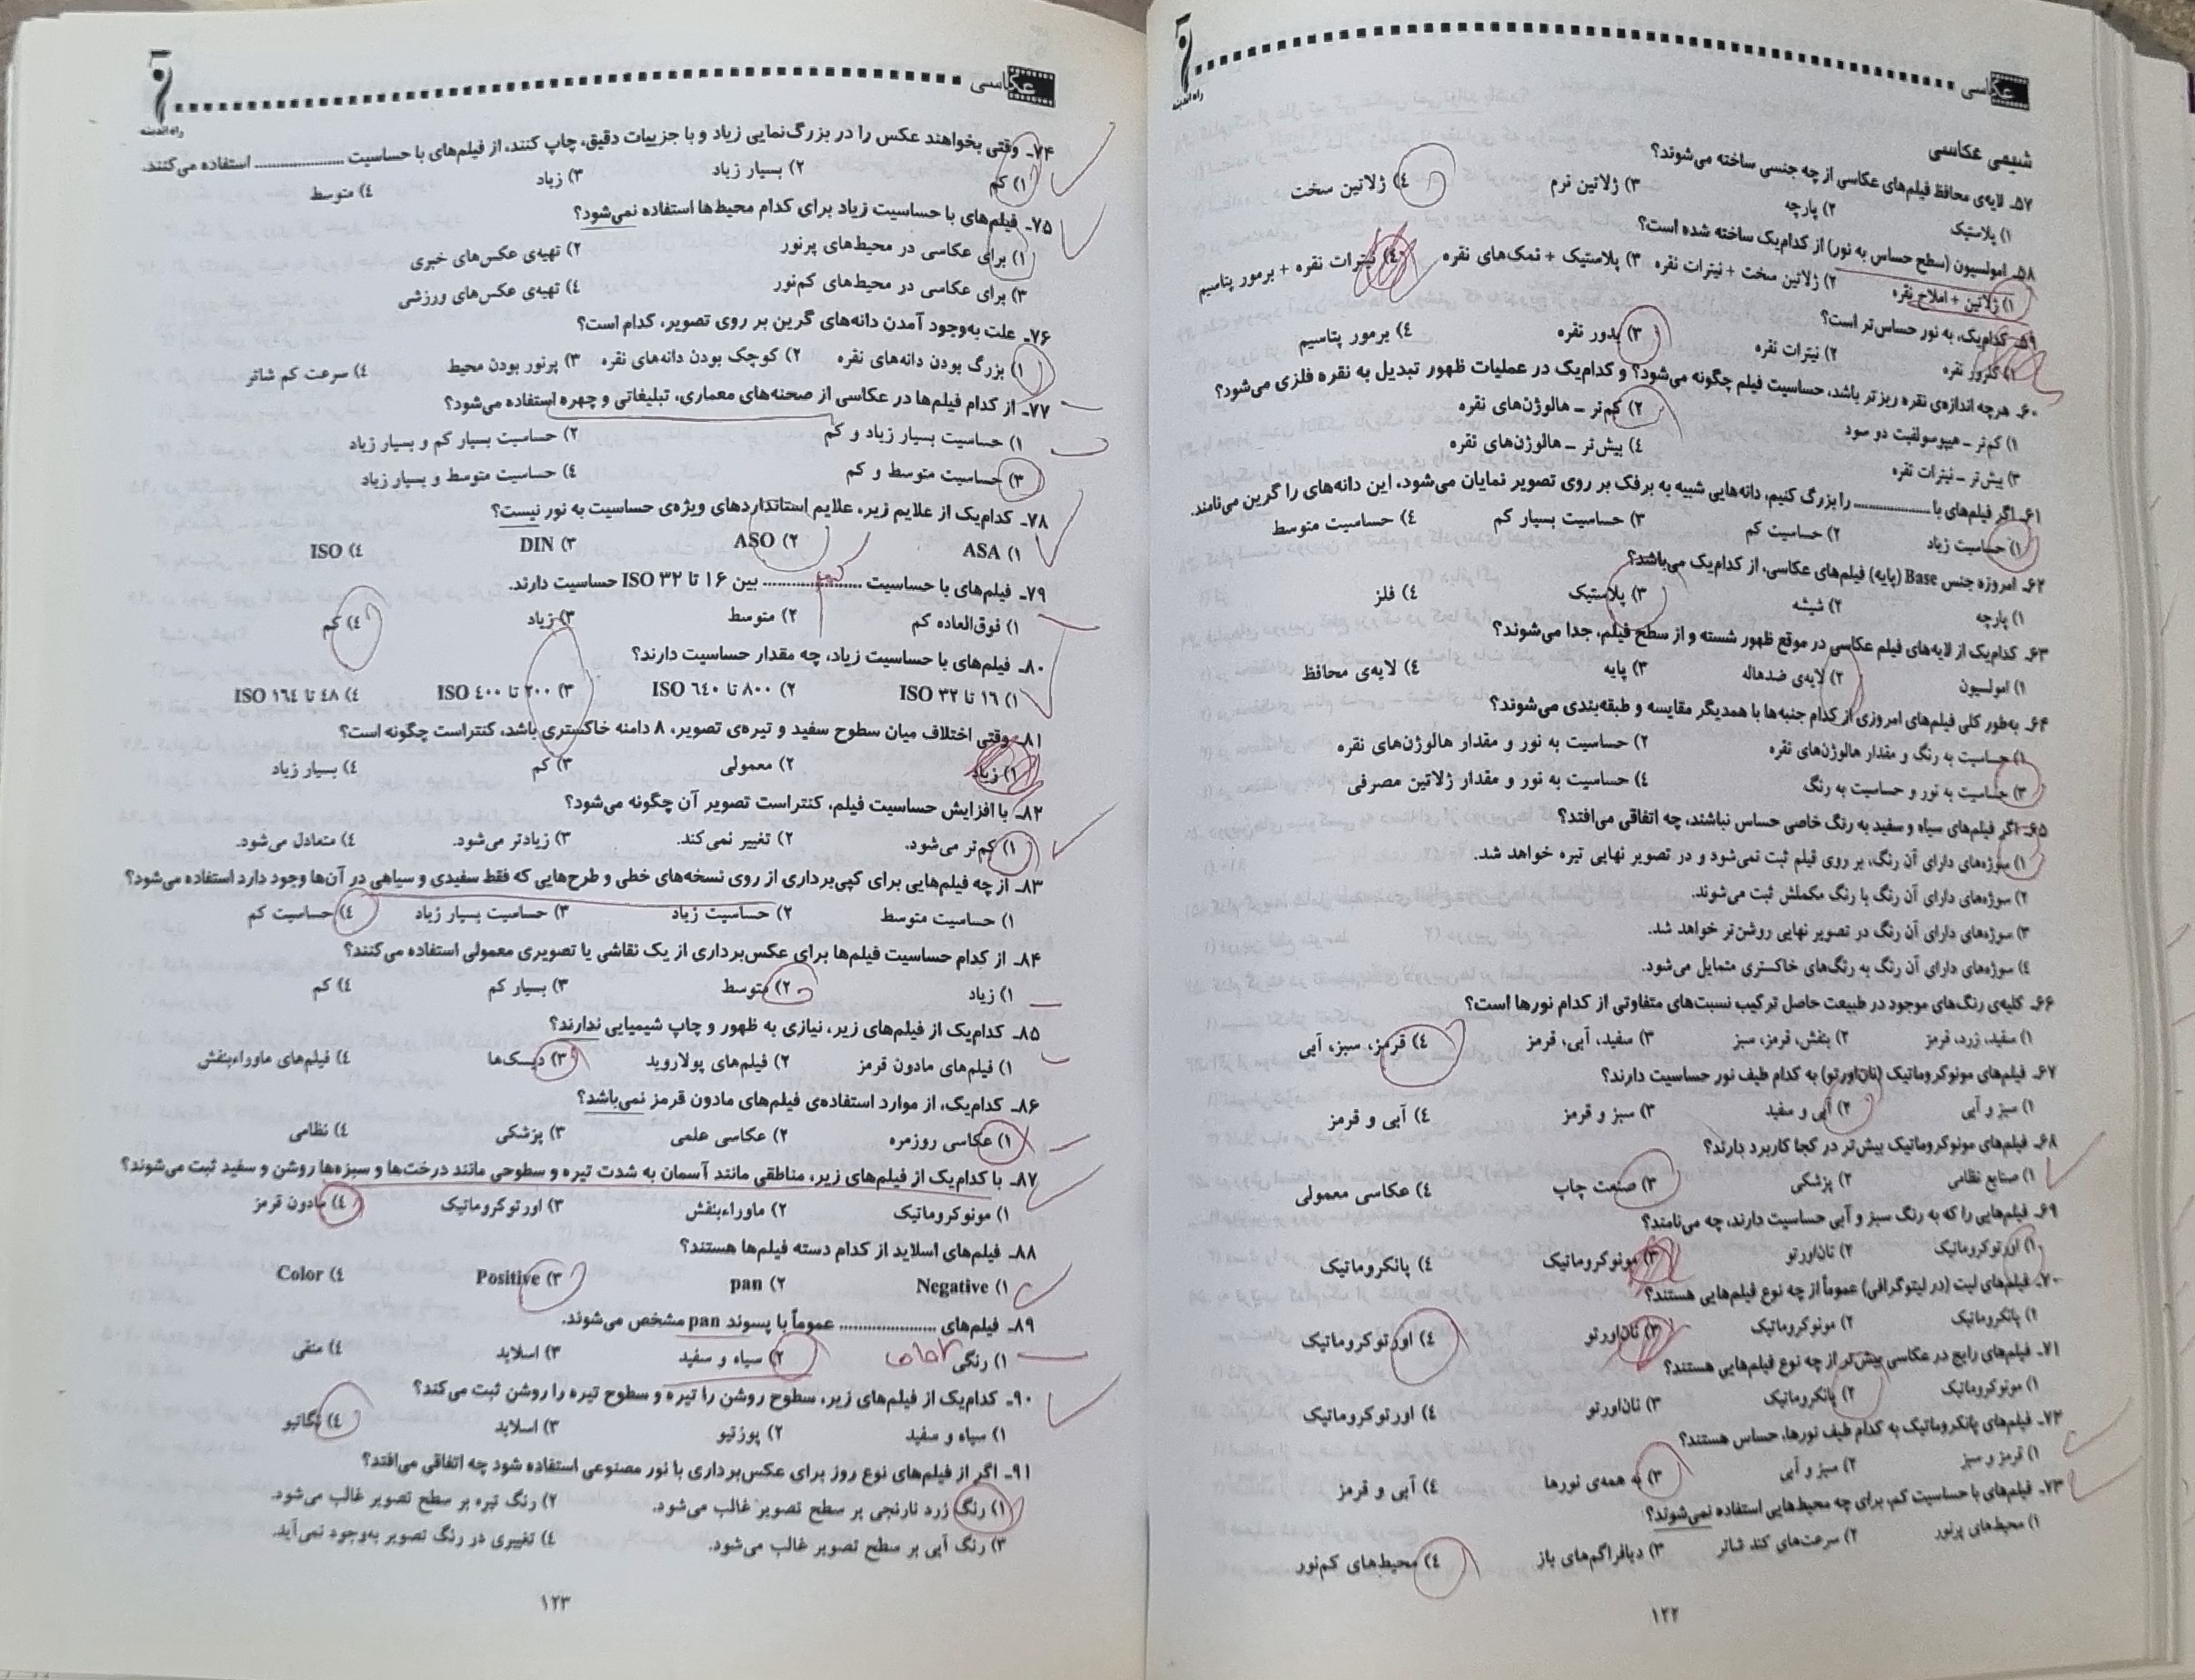 عکاسی
راه اندیشه
شیمی عکاسی
۵۷ـ لایه‌ی محافظ فیلم‌های عکاسی از چه جنسی ساخته می‌شوند؟
۱) پلاستیک ۲) پارچه ۳) ژلاتین نرم ۴) ژلاتین سخت
۵۸ـ امولسیون (سطح حساس به نور) از کدام‌یک ساخته شده است؟
۱) ژلاتین + املاح نقره ۲) ژلاتین سخت + نیترات نقره ۳) پلاستیک + نمک‌های نقره ۴) نیترات نقره + برمور پتاسیم
۵۹ـ کدام‌یک، به نور حساس‌تر است؟
۱) کلرور نقره ۲) نیترات نقره ۳) یدور نقره ۴) برمور پتاسیم
۶۰ـ هرچه اندازه‌ی نقره ریزتر باشد، حساسیت فیلم چگونه می‌شود؟ و کدام‌یک در عملیات ظهور تبدیل به نقره فلزی می‌شود؟
۱) کم‌تر ـ هیپوسولفیت دو سود ۲) کم‌تر ـ هالوژن‌های نقره
۳) بیش‌تر ـ نیترات نقره ۴) بیش‌تر ـ هالوژن‌های نقره
۶۱ـ اگر فیلم‌های با .................... را بزرگ کنیم، دانه‌هایی شبیه به برفک بر روی تصویر نمایان می‌شود، این دانه‌های را گرین می‌نامند.
۱) حساسیت زیاد ۲) حساسیت کم ۳) حساسیت بسیار کم ۴) حساسیت متوسط
۶۲ـ امروزه جنس Base (پایه) فیلم‌های عکاسی، از کدام‌یک می‌باشد؟
۱) پارچه ۲) شیشه ۳) پلاستیک ۴) فلز
۶۳ـ کدام‌یک از لایه‌های فیلم عکاسی در موقع ظهور شسته و از سطح فیلم، جدا می‌شوند؟
۱) امولسیون ۲) لایه‌ی ضدهاله ۳) پایه ۴) لایه‌ی محافظ
۶۴ـ به‌طور کلی فیلم‌های امروزی از کدام جنبه‌ها با همدیگر مقایسه و طبقه‌بندی می‌شوند؟
۱) حساسیت به رنگ و مقدار هالوژن‌های نقره ۲) حساسیت به نور و مقدار هالوژن‌های نقره
۳) حساسیت به نور و حساسیت به رنگ ۴) حساسیت به نور و مقدار ژلاتین مصرفی
۶۵ـ اگر فیلم‌های سیاه و سفید به رنگ خاصی حساس نباشند، چه اتفاقی می‌افتد؟
۱) سوژه‌های دارای آن رنگ، بر روی فیلم ثبت نمی‌شود و در تصویر نهایی تیره خواهد شد.
۲) سوژه‌های دارای آن رنگ با رنگ مکملش ثبت می‌شوند.
۳) سوژه‌های دارای آن رنگ در تصویر نهایی روشن‌تر خواهد شد.
۴) سوژه‌های دارای آن رنگ به رنگ‌های خاکستری متمایل می‌شود.
۶۶ـ کلیه‌ی رنگ‌های موجود در طبیعت حاصل ترکیب نسبت‌های متفاوتی از کدام نورها است؟
۱) سفید، زرد، قرمز ۲) بنفش، قرمز، سبز ۳) سفید، آبی، قرمز ۴) قرمز، سبز، آبی
۶۷ـ فیلم‌های مونوکروماتیک (نان‌اورتو) به کدام طیف نور حساسیت دارند؟
۱) سبز و آبی ۲) آبی و سفید ۳) سبز و قرمز ۴) آبی و قرمز
۶۸ـ فیلم‌های مونوکروماتیک بیش‌تر در کجا کاربرد دارند؟
۱) صنایع نظامی ۲) پزشکی ۳) صنعت چاپ ۴) عکاسی معمولی
۶۹ـ فیلم‌هایی را که به رنگ سبز و آبی حساسیت دارند، چه می‌نامند؟
۱) اورتوکروماتیک ۲) نان‌اورتو ۳) مونوکروماتیک ۴) پانکروماتیک
۷۰ـ فیلم‌های لیت (در لیتوگرافی) عموماً از چه نوع فیلم‌هایی هستند؟
۱) پانکروماتیک ۲) مونوکروماتیک ۳) نان‌اورتو ۴) اورتوکروماتیک
۷۱ـ فیلم‌های رایج در عکاسی بیش‌تر از چه نوع فیلم‌هایی هستند؟
۱) مونوکروماتیک ۲) پانکروماتیک ۳) نان‌اورتو ۴) اورتوکروماتیک
۷۲ـ فیلم‌های پانکروماتیک به کدام طیف نورها، حساس هستند؟
۱) قرمز و سبز ۲) سبز و آبی ۳) به همه‌ی نورها ۴) آبی و قرمز
۷۳ـ فیلم‌های با حساسیت کم، برای چه محیط‌هایی استفاده نمی‌شوند؟
۱) محیط‌های پرنور ۲) سرعت‌های کند شاتر ۳) دیافراگم‌های باز ۴) محیط‌های کم‌نور
۱۲۲
عکاسی
راه اندیشه
۷۴ـ وقتی بخواهند عکس را در بزرگ‌نمایی زیاد و با جزییات دقیق، چاپ کنند، از فیلم‌های با حساسیت .................... استفاده می‌کنند.
۱) کم ۲) بسیار زیاد ۳) زیاد ۴) متوسط
۷۵ـ فیلم‌های با حساسیت زیاد برای کدام محیط‌ها استفاده نمی‌شود؟
۱) برای عکاسی در محیط‌های پرنور ۲) تهیه‌ی عکس‌های خبری
۳) برای عکاسی در محیط‌های کم‌نور ۴) تهیه‌ی عکس‌های ورزشی
۷۶ـ علت به‌وجود آمدن دانه‌های گرین بر روی تصویر، کدام است؟
۱) بزرگ بودن دانه‌های نقره ۲) کوچک بودن دانه‌های نقره ۳) پرنور بودن محیط ۴) سرعت کم شاتر
۷۷ـ از کدام فیلم‌ها در عکاسی از صحنه‌های معماری، تبلیغاتی و چهره استفاده می‌شود؟
۱) حساسیت بسیار زیاد و کم ۲) حساسیت بسیار کم و بسیار زیاد
۳) حساسیت متوسط و کم ۴) حساسیت متوسط و بسیار زیاد
۷۸ـ کدام‌یک از علایم زیر، علایم استانداردهای ویژه‌ی حساسیت به نور نیست؟
۱) ASA ۲) ASO ۳) DIN ۴) ISO
۷۹ـ فیلم‌های با حساسیت .................... بین ۱۶ تا ۳۲ ISO حساسیت دارند.
کم
۱) فوق‌العاده کم ۲) متوسط ۳) زیاد ۴) کم
۸۰ـ فیلم‌های با حساسیت زیاد، چه مقدار حساسیت دارند؟
۱) ۱۶ تا ۳۲ ISO ۲) ۸۰۰ تا ۶۴۰ ISO ۳) ۲۰۰ تا ۴۰۰ ISO ۴) ۴۸ تا ۱۶۴ ISO
۸۱ـ وقتی اختلاف میان سطوح سفید و تیره‌ی تصویر، ۸ دامنه خاکستری باشد، کنتراست چگونه است؟
۱) زیاد ۲) معمولی ۳) کم ۴) بسیار زیاد
۸۲ـ با افزایش حساسیت فیلم، کنتراست تصویر آن چگونه می‌شود؟
۱) کم‌تر می‌شود. ۲) تغییر نمی‌کند. ۳) زیادتر می‌شود. ۴) متعادل می‌شود.
۸۳ـ از چه فیلم‌هایی برای کپی‌برداری از روی نسخه‌های خطی و طرح‌هایی که فقط سفیدی و سیاهی در آن‌ها وجود دارد استفاده می‌شود؟
۱) حساسیت متوسط ۲) حساسیت زیاد ۳) حساسیت بسیار زیاد ۴) حساسیت کم
۸۴ـ از کدام حساسیت فیلم‌ها برای عکس‌برداری از یک نقاشی یا تصویری معمولی استفاده می‌کنند؟
۱) زیاد ۲) متوسط ۳) بسیار کم ۴) کم
۸۵ـ کدام‌یک از فیلم‌های زیر، نیازی به ظهور و چاپ شیمیایی ندارند؟
۱) فیلم‌های مادون قرمز ۲) فیلم‌های پولاروید ۳) دیسک‌ها ۴) فیلم‌های ماوراءبنفش
۸۶ـ کدام‌یک، از موارد استفاده‌ی فیلم‌های مادون قرمز نمی‌باشد؟
۱) عکاسی روزمره ۲) عکاسی علمی ۳) پزشکی ۴) نظامی
۸۷ـ با کدام‌یک از فیلم‌های زیر، مناطقی مانند آسمان به شدت تیره و سطوحی مانند درخت‌ها و سبزه‌ها روشن و سفید ثبت می‌شوند؟
۱) مونوکروماتیک ۲) ماوراءبنفش ۳) اورتوکروماتیک ۴) مادون قرمز
۸۸ـ فیلم‌های اسلاید از کدام دسته فیلم‌ها هستند؟
۱) Negative ۲) pan ۳) Positive ۴) Color
۸۹ـ فیلم‌های .................... عموماً با پسوند pan مشخص می‌شوند.
۱) رنگی ۲) سیاه و سفید ۳) اسلاید ۴) منفی
۹۰ـ کدام‌یک از فیلم‌های زیر، سطوح روشن را تیره و سطوح تیره را روشن ثبت می‌کند؟
۱) سیاه و سفید ۲) پوزتیو ۳) اسلاید ۴) نگاتیو
۹۱ـ اگر از فیلم‌های نوع روز برای عکس‌برداری با نور مصنوعی استفاده شود چه اتفاقی می‌افتد؟
۱) رنگ زرد نارنجی بر سطح تصویر غالب می‌شود. ۲) رنگ تیره بر سطح تصویر غالب می‌شود.
۳) رنگ آبی بر سطح تصویر غالب می‌شود. ۴) تغییری در رنگ تصویر به‌وجود نمی‌آید.
۱۲۳